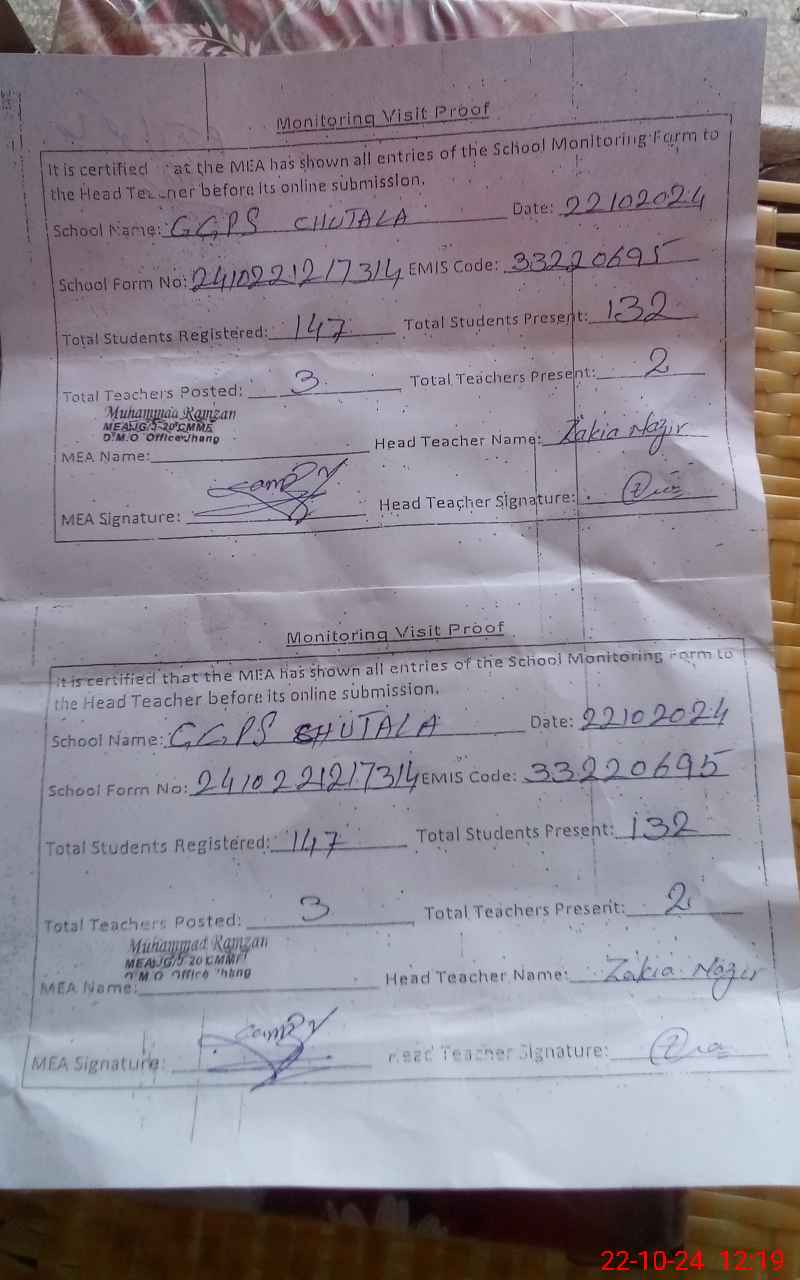 Monitoring Visit Proof
It is certified at the MEA has shown all entries of the School Monitoring Form to
the Head Teacher before its online submission.
School Name: GGPS CHUTALA Date: 22102024
School Form No: 2410221217314 EMIS Code: 33220695
Total Students Registered: 147 Total Students Present: 132
Total Teachers Posted: 3 Total Teachers Present: 2
Muhammad Ramzan
D.M.O Office Jhang
MEA Name: Head Teacher Name: Zakia Nazir
MEA Signature: Head Teacher Signature:
Monitoring Visit Proof
It is certified that the MEA has shown all entries of the School Monitoring Form to
the Head Teacher before its online submission.
School Name: GGPS CHUTALA Date: 22102024
School Form No: 2410221217314 EMIS Code: 33220695
Total Students Registered: 147 Total Students Present: 132
Total Teachers Posted: 3 Total Teachers Present: 2
Muhammad Ramzan
D.M.O Office Jhang
MEA Name: Head Teacher Name: Zakia Nazir
MEA Signature: Head Teacher Signature:
22-10-24 12:19